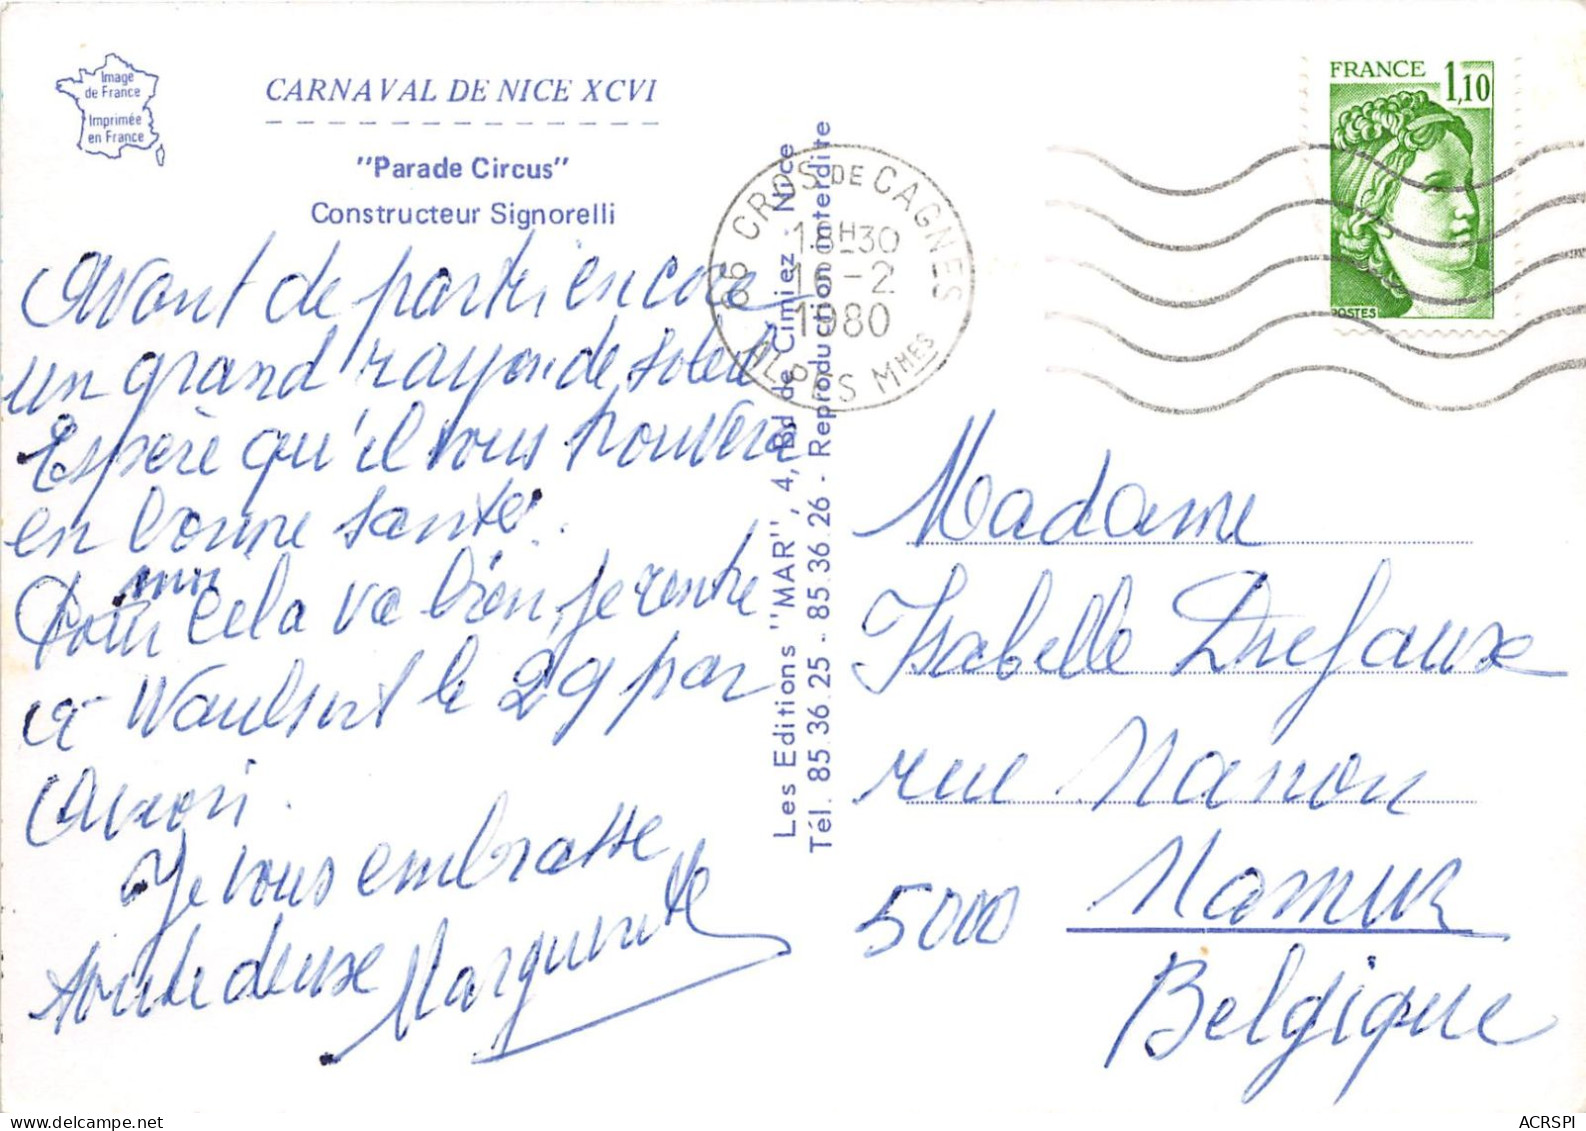 Image
de France
Imprimée
en France
CARNAVAL DE NICE XCVI
"Parade Circus"
Constructeur Signorelli
Avant de partir encore
un grand rayon de soleil
Espère qu'il vous trouvera
en bonne santé.
Pour moi cela va bien, je rentre
à Waulsort le 29 par
avion.
Je vous embrasse
toute deux Marguerite
Les Editions "MAR", 4, Bd de Cimiez - Nice
Tél. 85.36.25 - 85.36.26 - Reproduction interdite
06 CROS DE CAGNES
18H30
16-2
1980
ALPES MMES
FRANCE 1,10
POSTES
Madame
Isabelle Dufaux
rue Nanon
5000 Namur
Belgique
ACRSPI